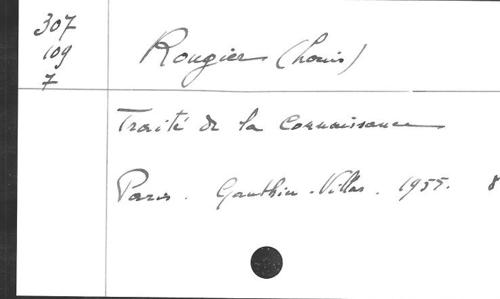 307
109
7
Rougier (Louis)
Traité de la Connaissance
Paris. Gauthier-Villars. 1955. 8